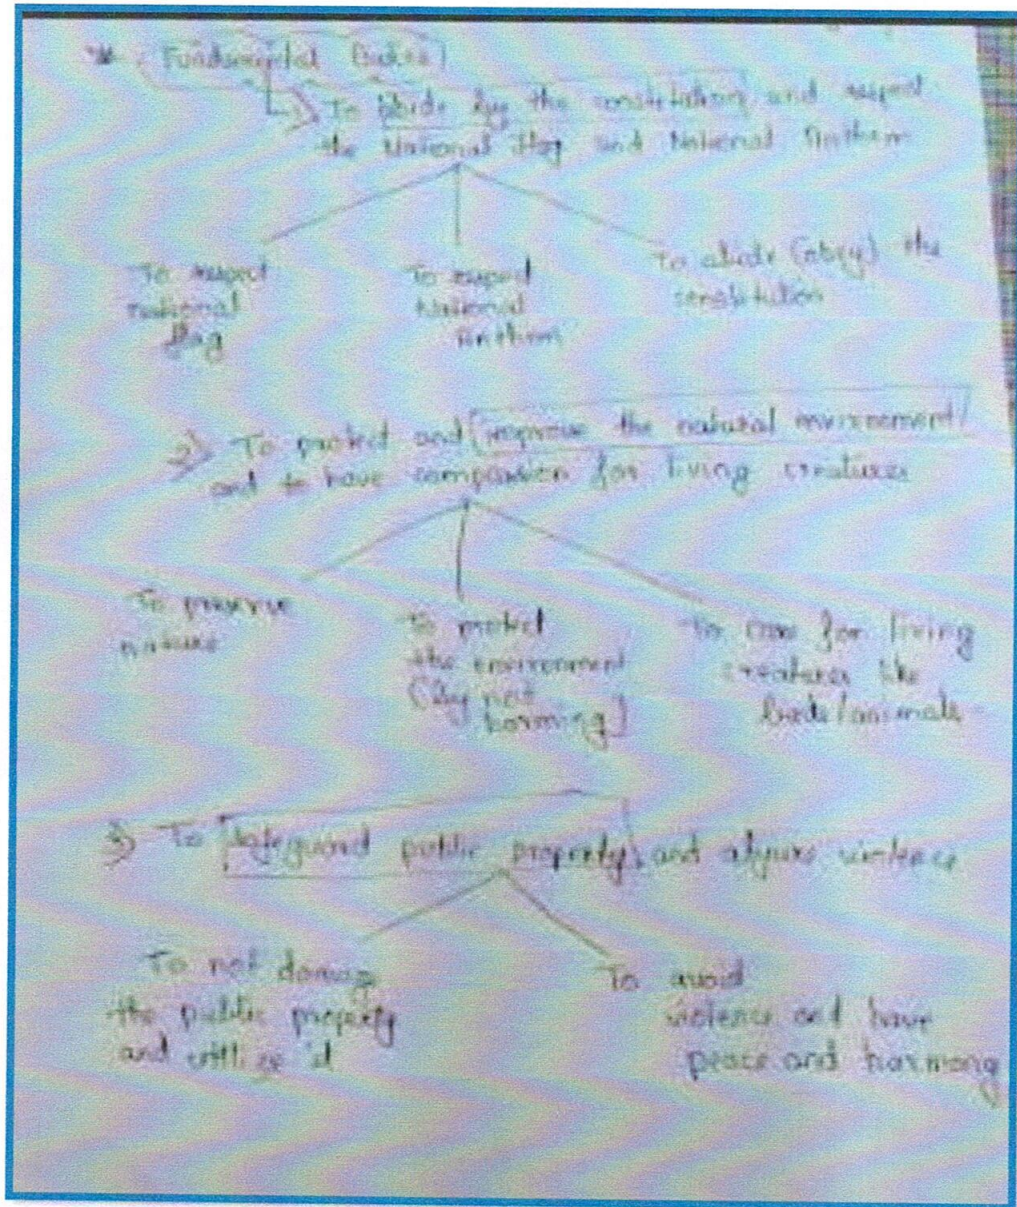 * Fundamental Duties
1) To abide by the constitution and respect
the National Flag and National Anthem
To respect
national
flag
To respect
National
Anthem
To abide (obey) the
constitution
2) To protect and improve the natural environment
and to have compassion for living creatures
To preserve
nature
To protect
the environment
(by not
harming)
To care for living
creatures like
birds/animals
3) To safeguard public property and abjure violence
To not damag
the public property
and utilize it
To avoid
violence and have
peace and harmony